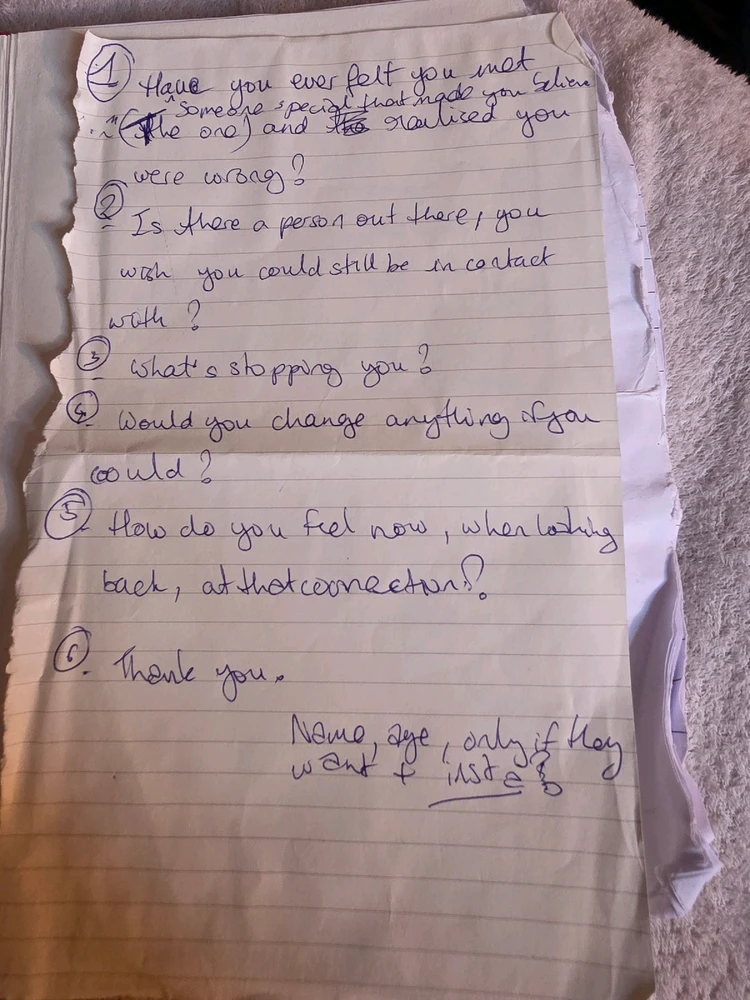 ① Have you ever felt you met
someone special that made you believe
"(the one) and realised you
were wrong?
② Is there a person out there, you
wish you could still be in contact
with?
③ What's stopping you?
④ Would you change anything if you
could?
⑤ How do you feel now, when looking
back, at that connection?
⑥ Thank you.
Name, age, only if they
want + insta